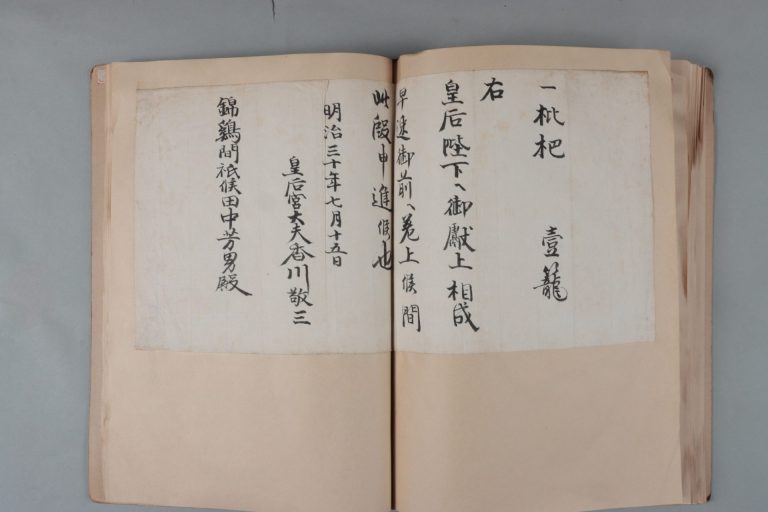 一枇杷 壹籠
右
皇后陛下へ御獻上相成
早速御前へ差上候間
此段申進候也
明治三十年七月十五日
皇后宮大夫香川敬三
錦鷄間祗候田中芳男殿